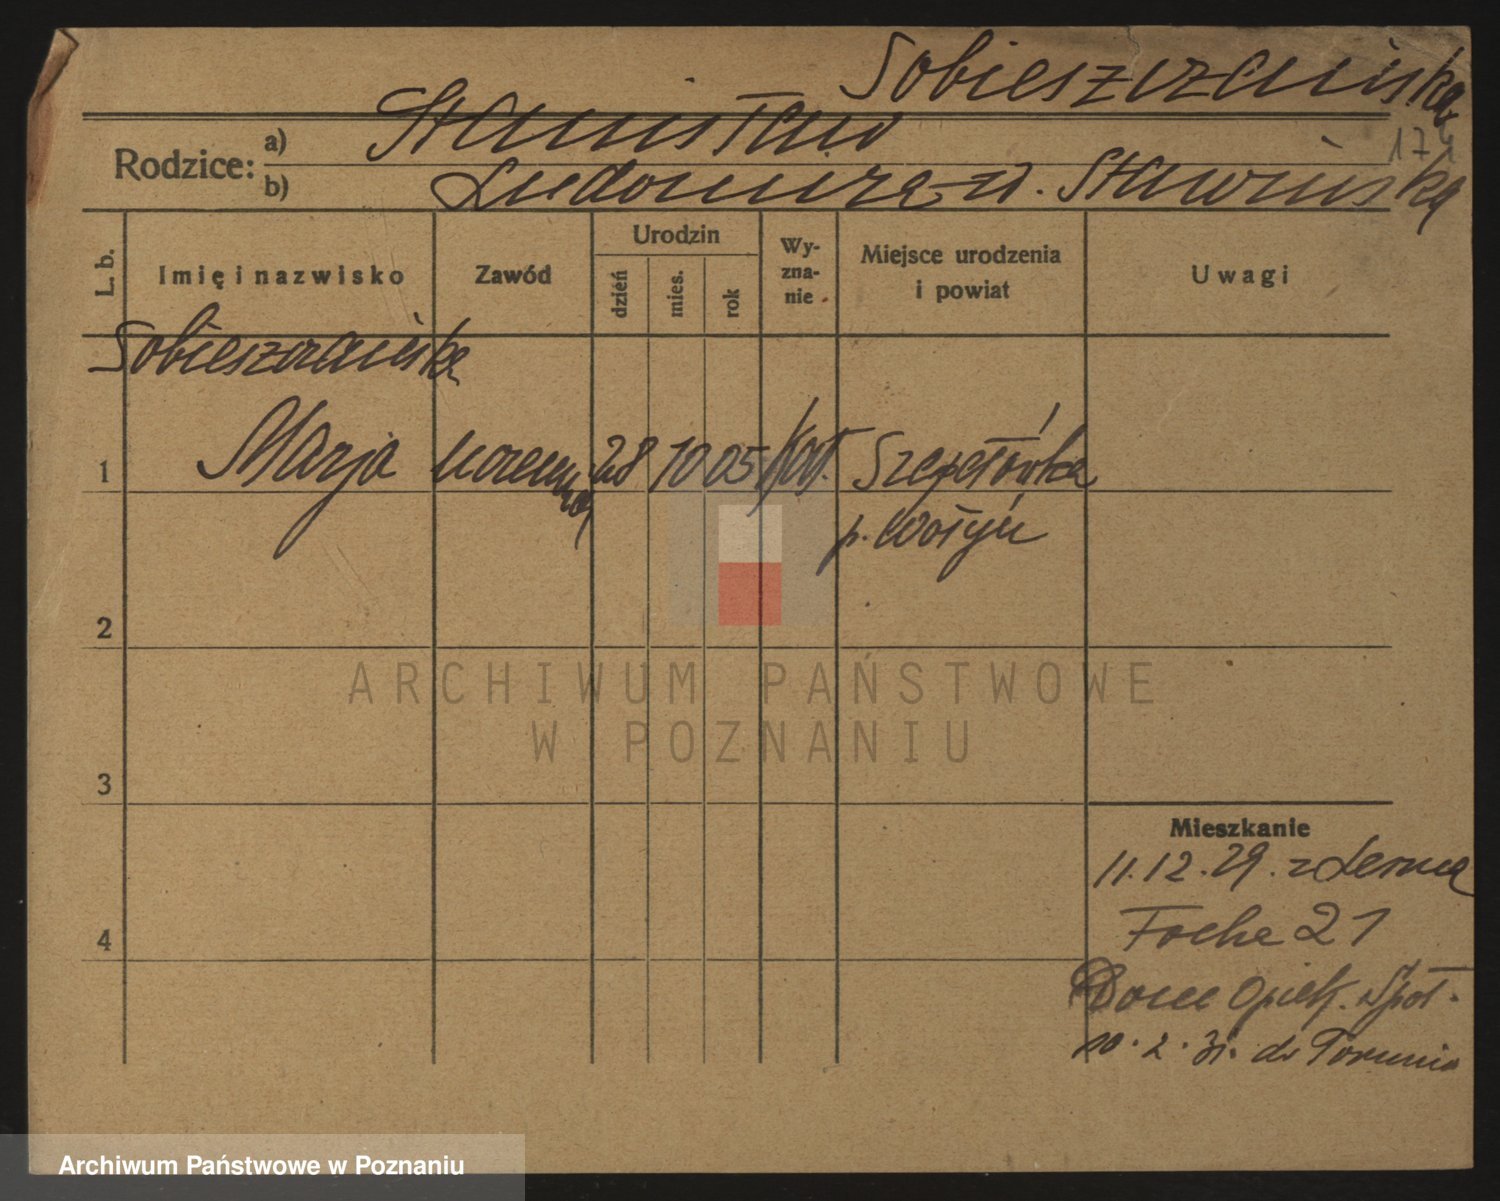 Sobieszczańska
174
Rodzice: a) Stanisław
b) Ludomira z d. Sławińska
L. b.
Imię i nazwisko
Zawód
Urodzin
dzień
mies.
rok
Wy-
zna-
nie
Miejsce urodzenia
i powiat
Uwagi
Sobieszczańska
1 Marja uczennica 28 10 05 kat. Szepetówka
p. Wołyń
2
3
4
Mieszkanie
11.12.29. z Leszna
Focha 21
Dom Opiek. Społ.
10.2.31. do Torunia
ARCHIWUM PAŃSTWOWE
W POZNANIU
Archiwum Państwowe w Poznaniu